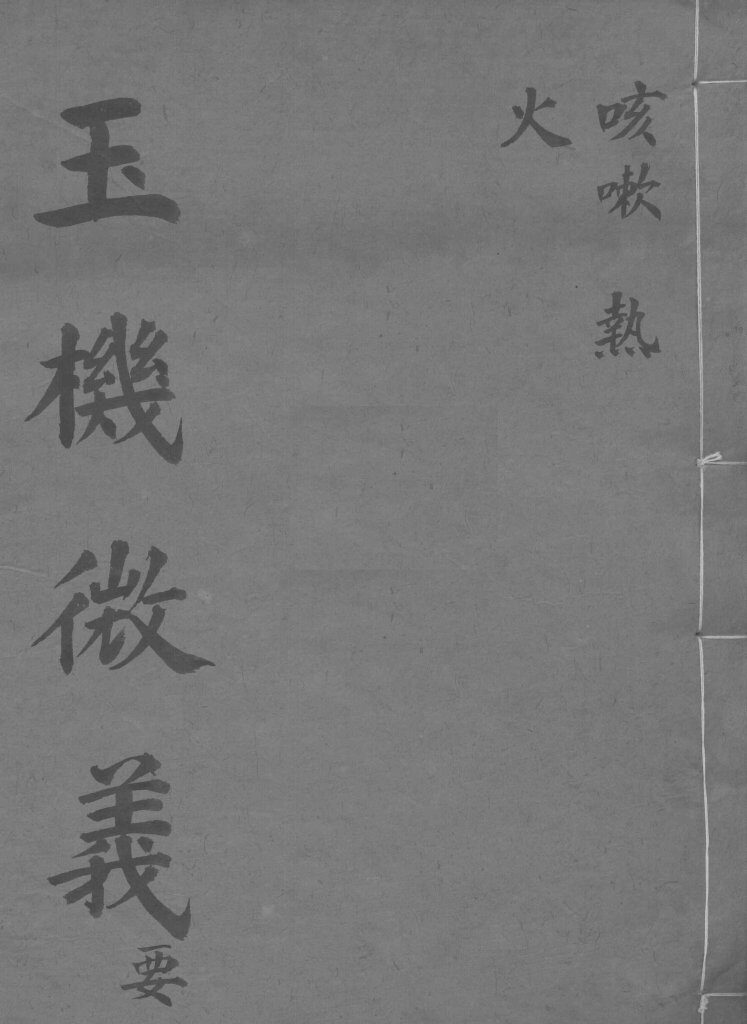 咳嗽 熱
火
玉機微義 要